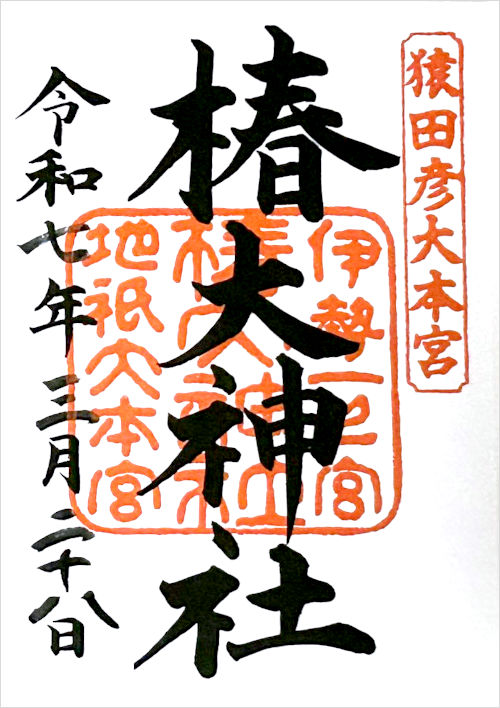 猿田彦大本宮
椿大神社
伊勢一之宮
椿大神社
地祇大本宮
令和七年三月二十八日